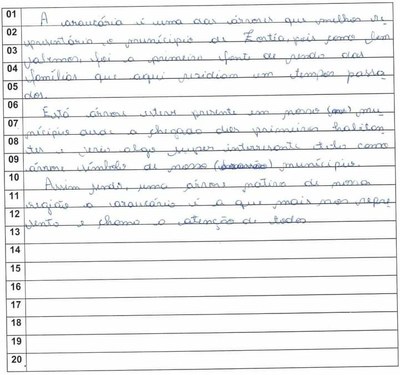 01 A araucária é uma das árvores que melhor re
02 presentária o município de Zortéa, pois como bem
03 sabemos, foi a primeira fonte de renda das
04 famílias que aqui residiam em tempos passa
05 dos.
06 Está árvore esteve presente em nosso mu
07 nicípio a chegada dos primeiros habitan
08 tes e seria algo super interessante tela como
09 árvore símbolo de nosso município.
10 Assim sendo, uma árvore nativa de nossa
11 região a araucária é a que mais nos repre
12 senta e chama a atenção de todos
13
14
15
16
17
18
19
20